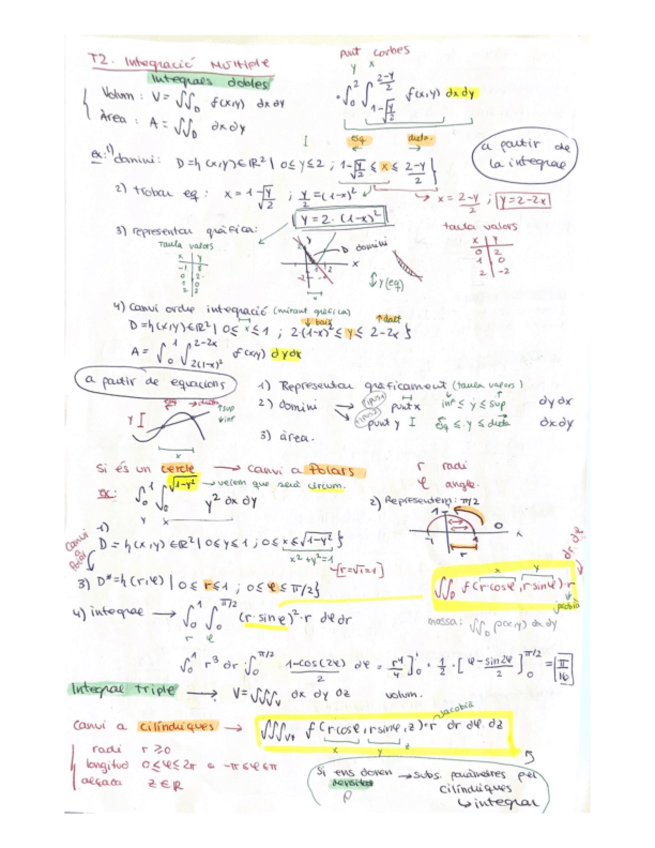 T2. Integració Múltiple
Integrals dobles
Volum: V = ∬_D f(x,y) dx dy
Àrea: A = ∬_D dx dy
punt corbes
y x
· ∫_0^2 ∫_{1-√(y/2)}^{(2-y)/2} f(x,y) dx dy
a partir de
la integral
esq. dreta.
ex: 1) domini: D = { (x,y) ∈ ℝ² | 0 ≤ y ≤ 2 ; 1-√(y/2) ≤ x ≤ (2-y)/2 }
2) trobar eq: x = 1-√(y/2) ; y/2 = (1-x)²
x = (2-y)/2 ; y = 2-2x
y = 2·(1-x)²
3) representar gràfica:
Taula valors
x y
-1 8
0 2
1 0
2 2
D domini
x
y (eq)
taula valors
x y
0 2
1 0
2 -2
4) Canvi ordre integració (mirant gràfica)
↓ baix ↑ dalt
D = { (x,y) ∈ ℝ² | 0 ≤ x ≤ 1 ; 2·(1-x)² ≤ y ≤ 2-2x }
A = ∫_0^1 ∫_{2(1-x)²}^{2-2x} f(x,y) dy dx
a partir de equacions
1) Representar gràficament (taula valors)
2) domini → punt x inf ≤ y ≤ sup dy dx
punt y I esq ≤ y ≤ dreta dx dy
3) àrea.
↑ sup
↓ inf
y I
x
Si és un cercle → canvi a Polars
r radi
φ angle.
ex: ∫_0^1 ∫_0^{√(1-y²)} y² dx dy
→ veiem que serà circum.
y x
2) Representem: π/2
1
0
-1 1 x
r
1)
D = { (x,y) ∈ ℝ² | 0 ≤ y ≤ 1 ; 0 ≤ x ≤ √(1-y²) }
x² + y² = 1
[r = √1 = 1]
Canvi
Polar
3) D* = { (r,φ) | 0 ≤ r ≤ 1 ; 0 ≤ φ ≤ π/2 }
dr dφ
x y
∬_D f(r cosφ, r sinφ)·r
jacobià
4) integral → ∫_0^1 ∫_0^{π/2} (r·sinφ)²·r dφ dr
r φ
massa: ∬_D ρ(x,y) dx dy
∫_0^1 r³ dr · ∫_0^{π/2} (1-cos(2φ))/2 dφ = r⁴/4 ]_0^1 · 1/2 · [ φ - sin2φ/2 ]_0^{π/2} = π/16
Integral Triple → V = ∭_V dx dy dz volum.
Canvi a cilíndriques → ∭_V f(r cosφ, r sinφ, z)·r dr dφ dz
jacobià
x y z
radi r ≥ 0
longitud 0 ≤ φ ≤ 2π o -π ≤ φ ≤ π
alçada z ∈ ℝ
Si ens donen → subs. paràmetres pel
densitat cilíndriques
ρ ↳ integrar